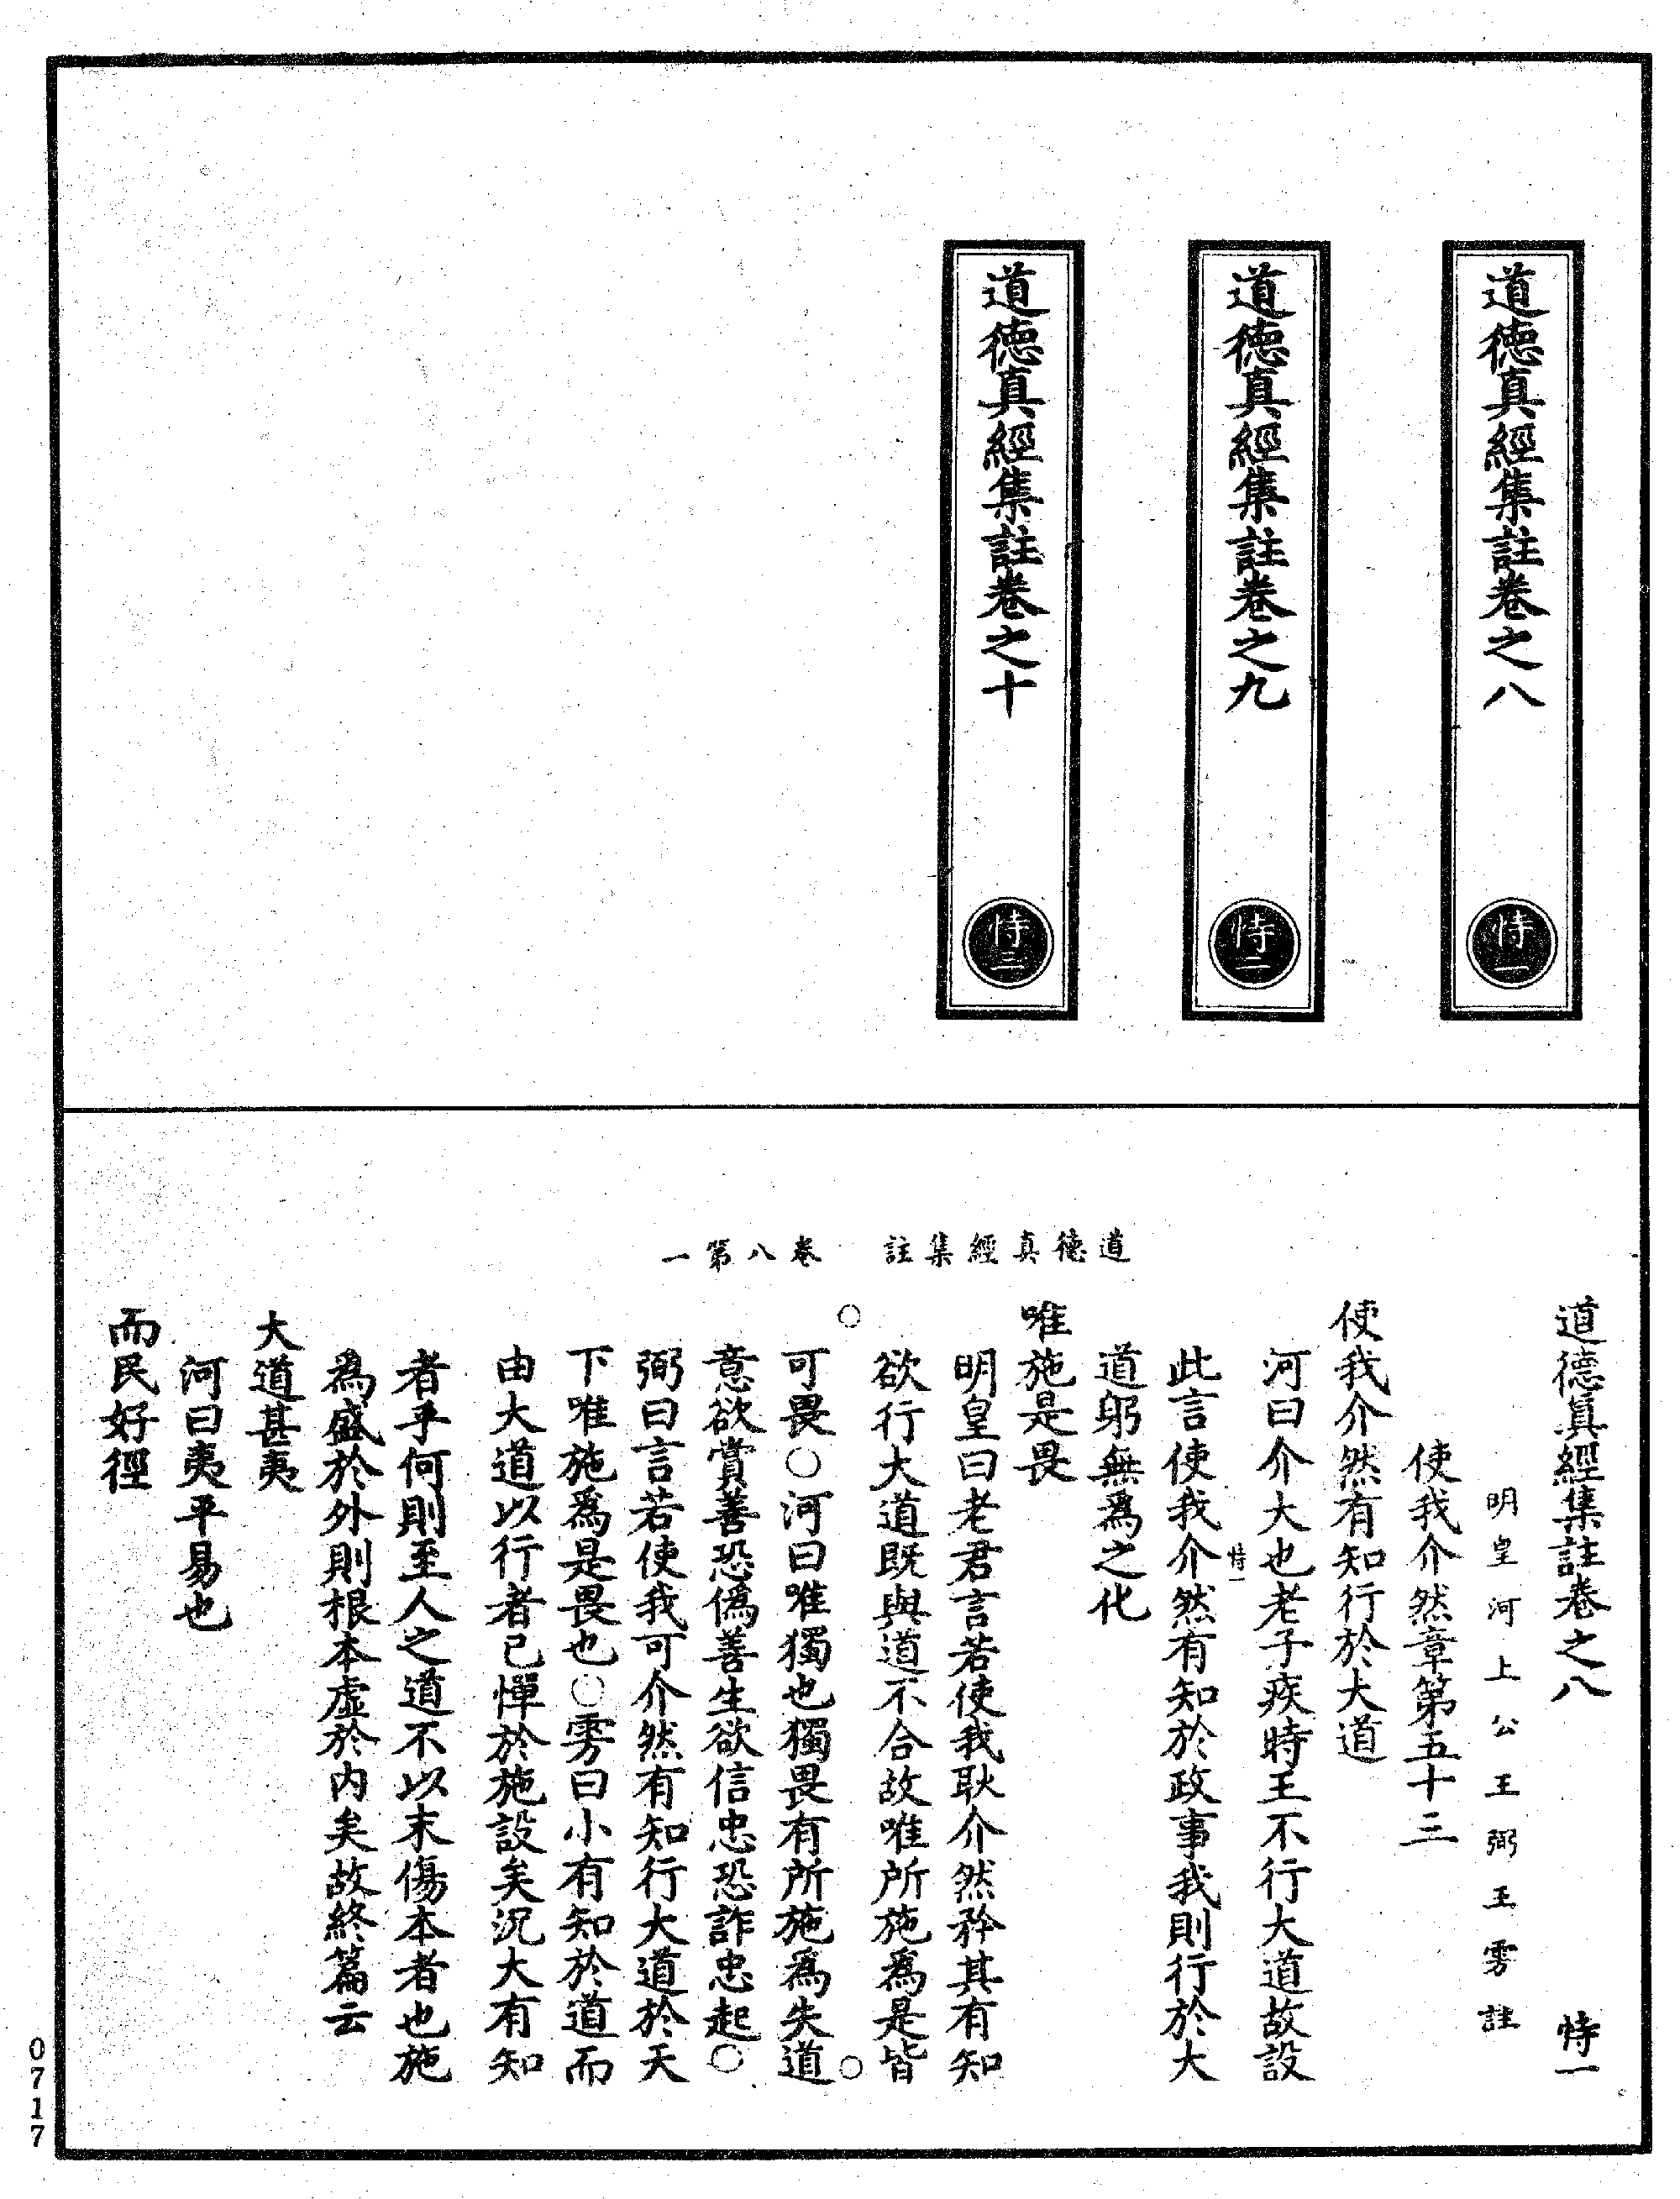 道德真經集註卷之八
恃一
道德真經集註卷之九
恃二
道德真經集註卷之十
恃三
道德真經集註 卷八第一
道德真經集註卷之八 恃一
明皇河上公王弼王雱註
使我介然章第五十三
使我介然有知行於大道
河曰介大也老子疾時王不行大道故設
恃一
此言使我介然有知於政事我則行於大
道躬無為之化
唯施是畏
明皇曰老君言若使我耿介然矜其有知
欲行大道既與道不合故唯所施為是皆
可畏○河曰唯獨也獨畏有所施為失道
意欲賞善恐偽善生欲信忠恐詐忠起○
弼曰言若使我可介然有知行大道於天
下唯施為是畏也○雱曰小有知於道而
由大道以行者已憚於施設矣況大有知
者乎何則至人之道不以末傷本者也施
為盛於外則根本虛於內矣故終篇云
大道甚夷
河曰夷平易也
而民好徑
0717